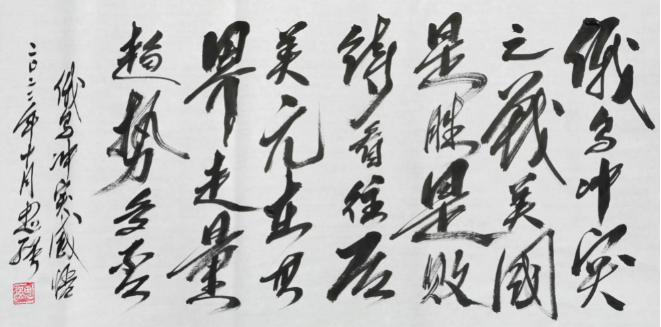 俄乌冲突
之战美国
是胜是败
待看往后
美元在世
界走量
趋势多
俄乌冲突感悟
二〇二二年十月忠